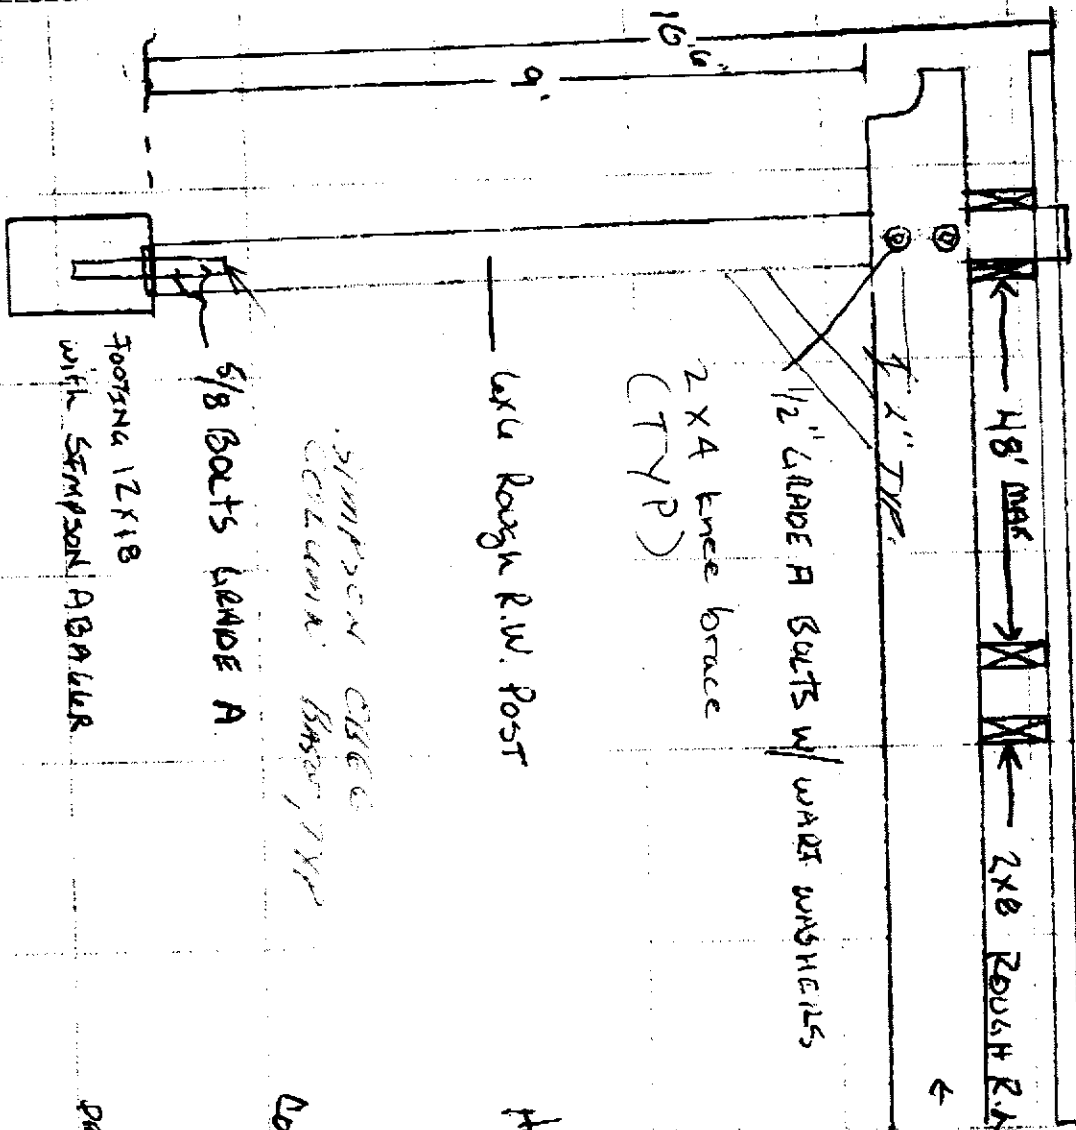 10'6"
9'
48' MAX
2x8 ROUGH R.
2" TYP.
1/2" GRADE A BOLTS W/ WART WASHERS
2 X 4 knee brace
(TYP)
6x6 Rough R.W. POST
SIMPSON CB66
COLUMN BASE, TYP
5/8 BOLTS GRADE A
FOOTING 12X18
with SIMPSON ABA66R
H
Co